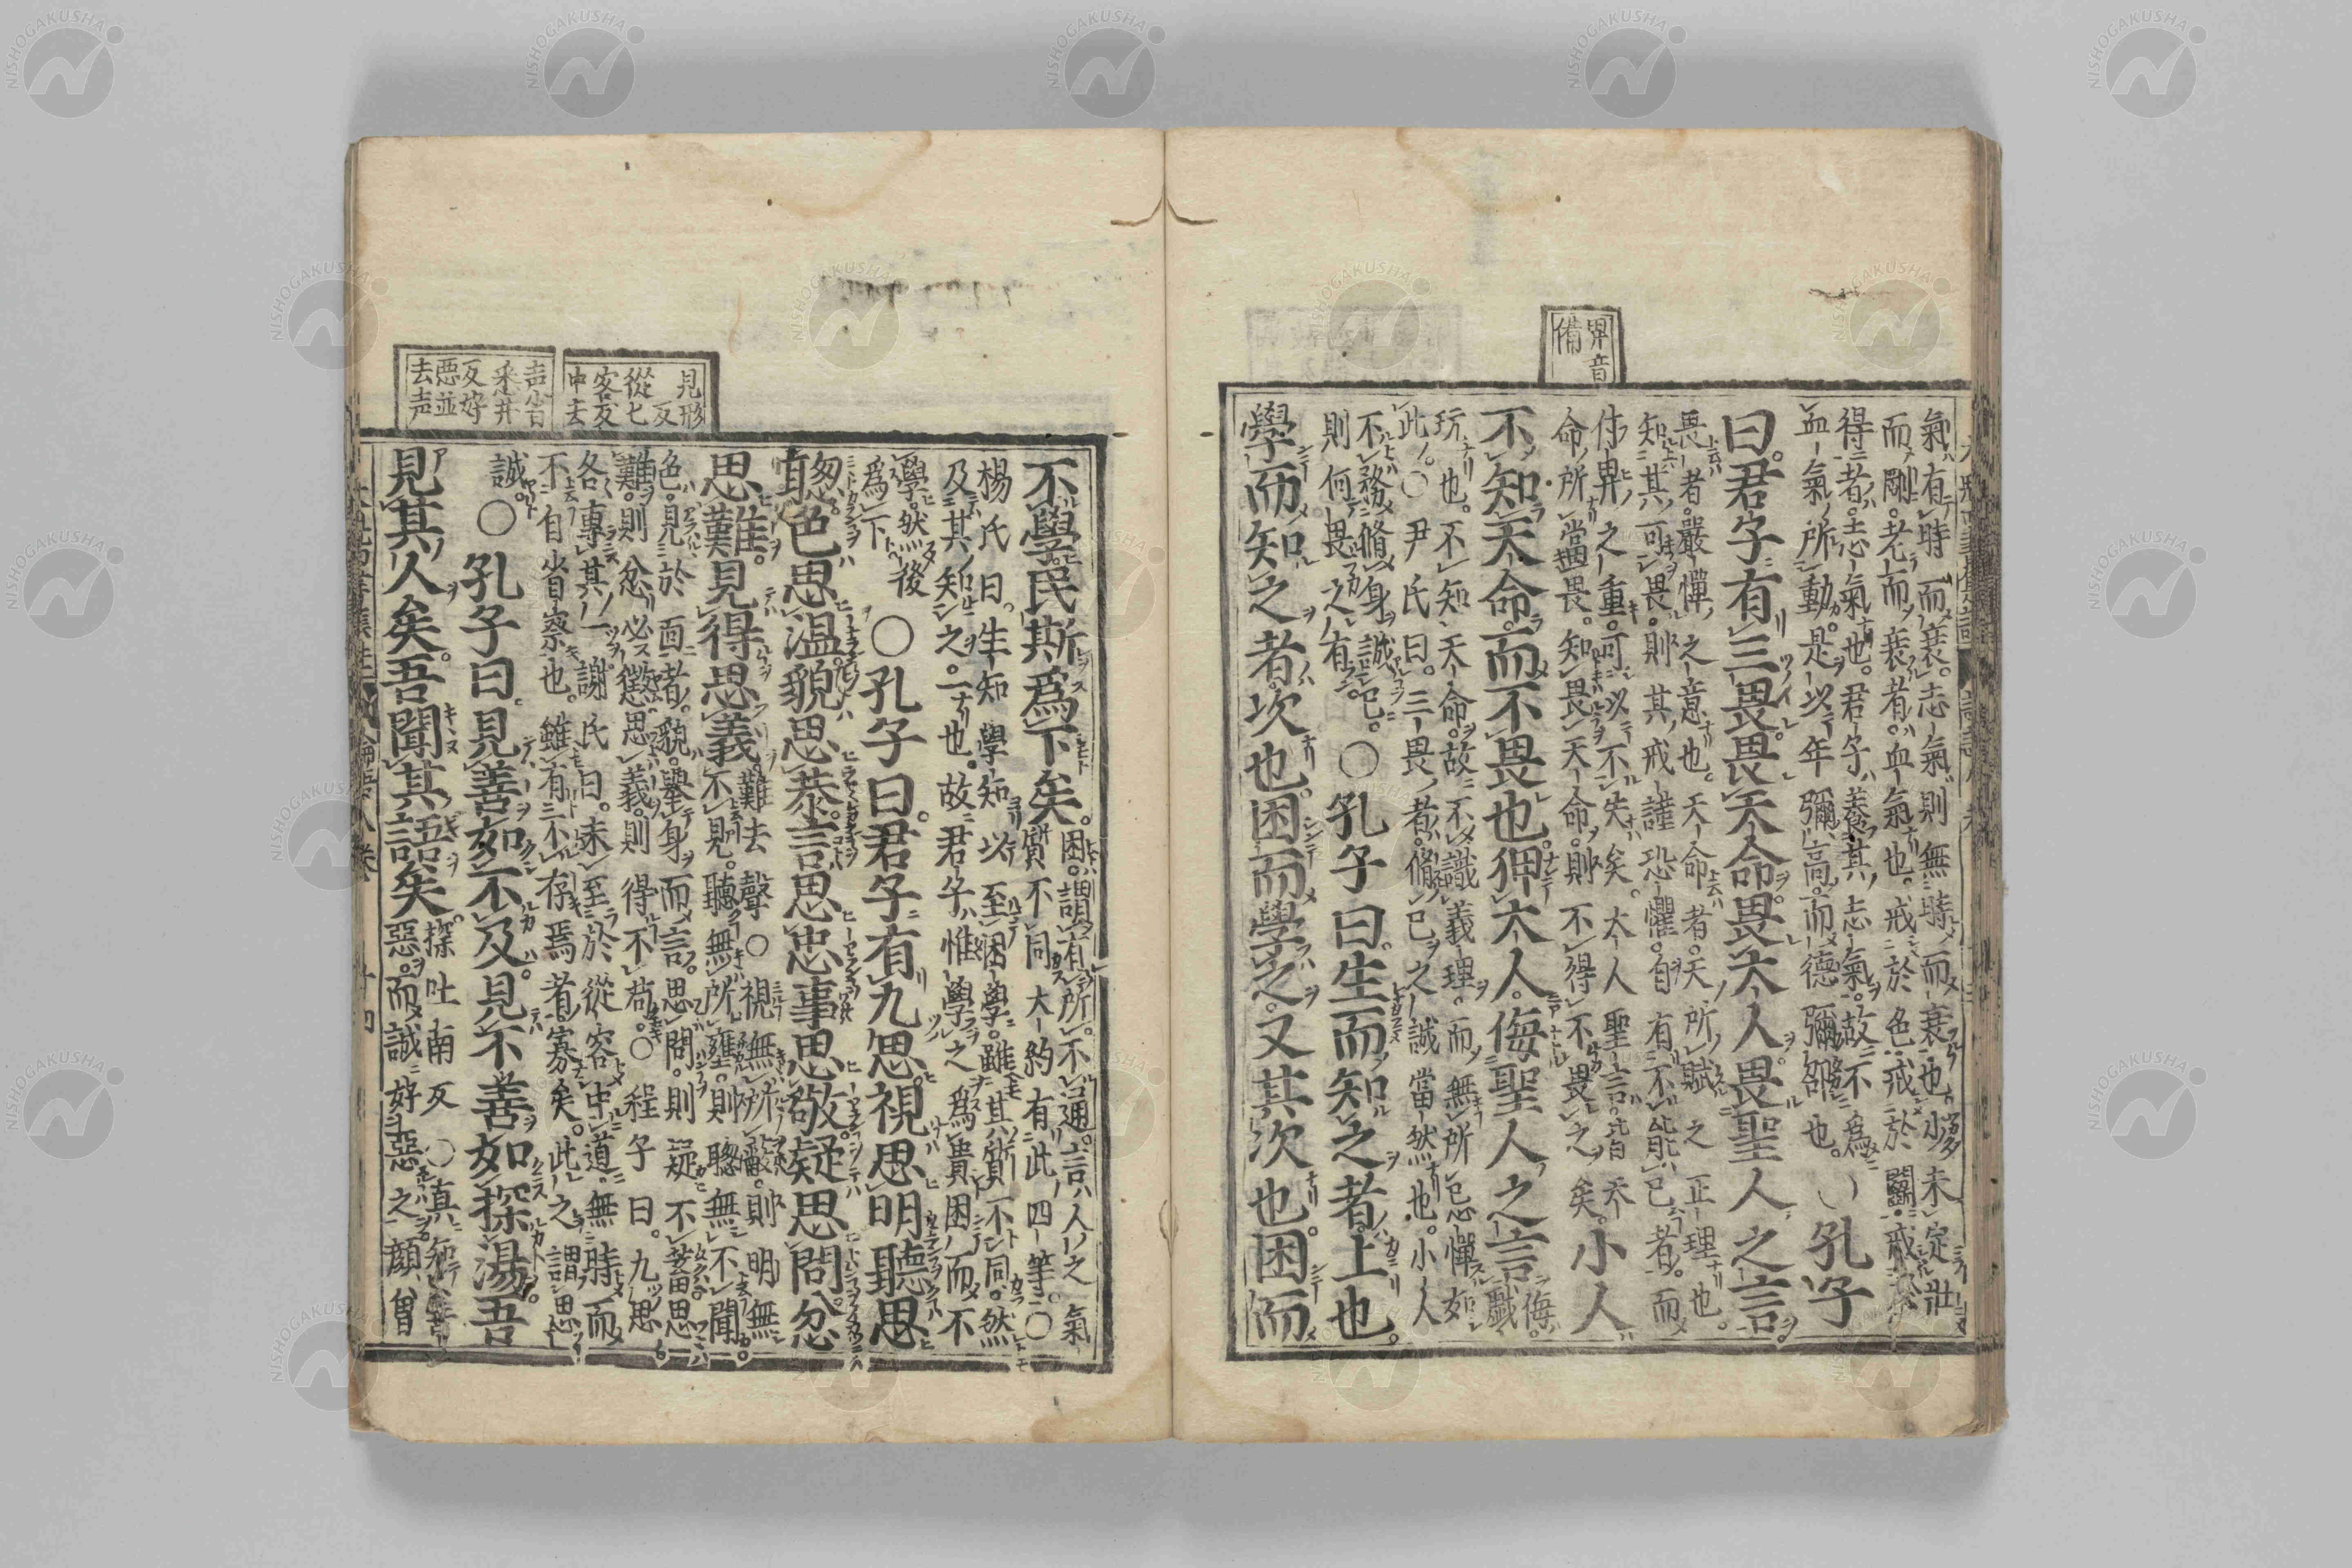 畀音
備
氣有時而衰。志氣則無時而衰也。少未定壯
而剛。老而衰者。血氣也。戒於色。戒於鬪。戒於
得者。志氣也。君子養其志氣。故不爲
血氣所動。是以年彌高。而德彌邵也。
○孔子
曰。君子有三畏。畏天命。畏大人。畏聖人之言。
畏者。嚴憚之意也。天命者。天所賦之正理也。
知其可畏。則其戒謹恐懼。自有不能已者。而
付畀之重。可以不失矣。大人聖言。皆天
命所當畏。知畏天命。則不得不畏之矣。
小人
不知天命而不畏也。狎大人。侮聖人之言。
侮
戲
玩也。不知天命。故不識義理。而無所忌憚如
此。○尹氏曰。三畏者。脩己之誠當然也。小人
不務脩身誠己。
則何畏之有。
○孔子曰。生而知之者。上也。
學而知之者。次也。困而學之。又其次也。困而
見形
反
從七
容反
中去
声省
悉井
反好
惡並
去声
不學。民斯爲下矣。
困。謂有所不通。言人之氣
質不同。大約有此四等。○
楊氏曰。生知學知。以至困學。雖其質不同。然
及其知之。一也。故君子惟學之爲貴。困而不
學。然後
爲下
○孔子曰。君子有九思。視思明。聽思
聰。色思溫。貌思恭。言思忠。事思敬。疑思問。忿
思難。見得思義。
難去聲○視無所蔽。則明無
不見。聽無所壅。則聰無不聞。
色。見於面者。貌。擧身而言。思問。則疑不蓄。思
難。則忿必懲。思義。則得不苟。○程子曰。九思
各專其一。謝氏曰。未至於從容中道。無時而
不自省察也。雖有不存焉者。寡矣。此之謂思
誠。
○孔子曰。見善如不及。見不善如探湯。吾
見其人矣。吾聞其語矣。
探吐南反○眞知善
惡。而誠好惡之。顏曾
NISHOGAKUSHA